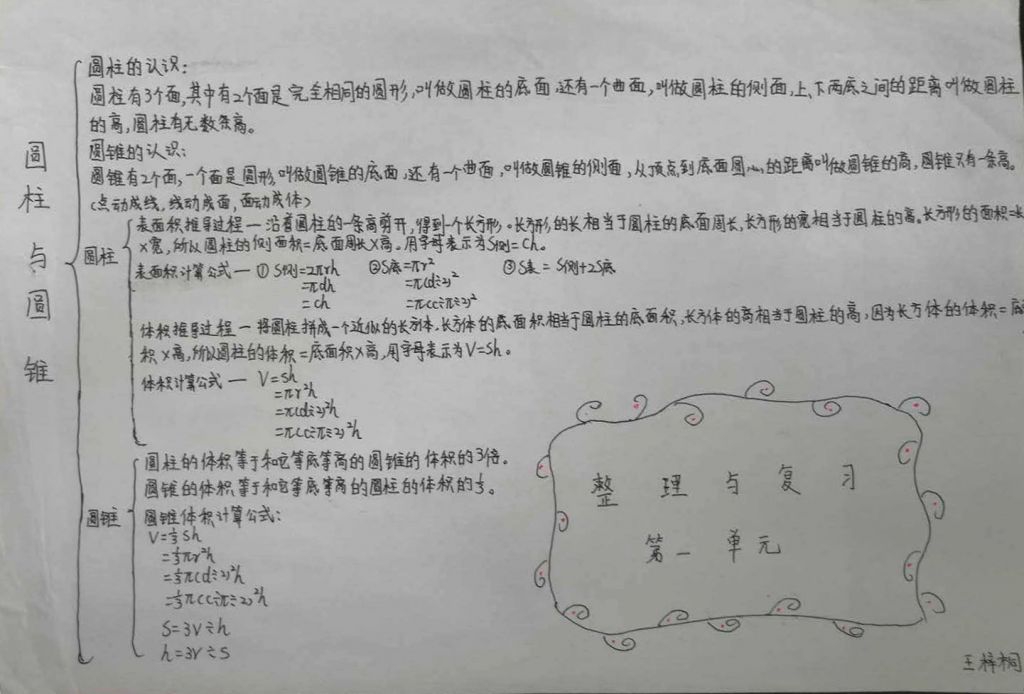 圆柱与圆锥
圆柱的认识:
圆柱有3个面,其中有2个面是完全相同的圆形,叫做圆柱的底面,还有一个曲面,叫做圆柱的侧面,上、下两底之间的距离叫做圆柱
的高,圆柱有无数条高。
圆锥的认识:
圆锥有2个面,一个面是圆形,叫做圆锥的底面,还有一个曲面,叫做圆锥的侧面,从顶点到底面圆心的距离叫做圆锥的高,圆锥只有一条高。
(点动成线,线动成面,面动成体)
圆柱
表面积推导过程—沿着圆柱的一条高剪开,得到一个长方形。长方形的长相当于圆柱的底面周长,长方形的宽相当于圆柱的高。长方形的面积=长
×宽,所以圆柱的侧面积=底面周长×高。用字母表示为S侧=Ch。
表面积计算公式— ①S侧=2πrh ②S底=πr² ③S表=S侧+2S底
=πdh =π(d÷2)²
=ch =π(c÷π÷2)²
体积推导过程—将圆柱拼成一个近似的长方体.长方体的底面积相当于圆柱的底面积,长方体的高相当于圆柱的高,因为长方体的体积=底
积×高,所以圆柱的体积=底面积×高,用字母表示为V=Sh。
体积计算公式— V=sh
=πr²h
=π(d÷2)²h
=π(c÷π÷2)²h
圆锥
圆柱的体积等于和它等底等高的圆锥的体积的3倍。
圆锥的体积等于和它等底等高的圆柱的体积的⅓。
圆锥体积计算公式:
V=⅓Sh
=⅓πr²h
=⅓π(d÷2)²h
=⅓π(c÷π÷2)²h
S=3V÷h
h=3V÷S
整理与复习
第一单元
王梓桐